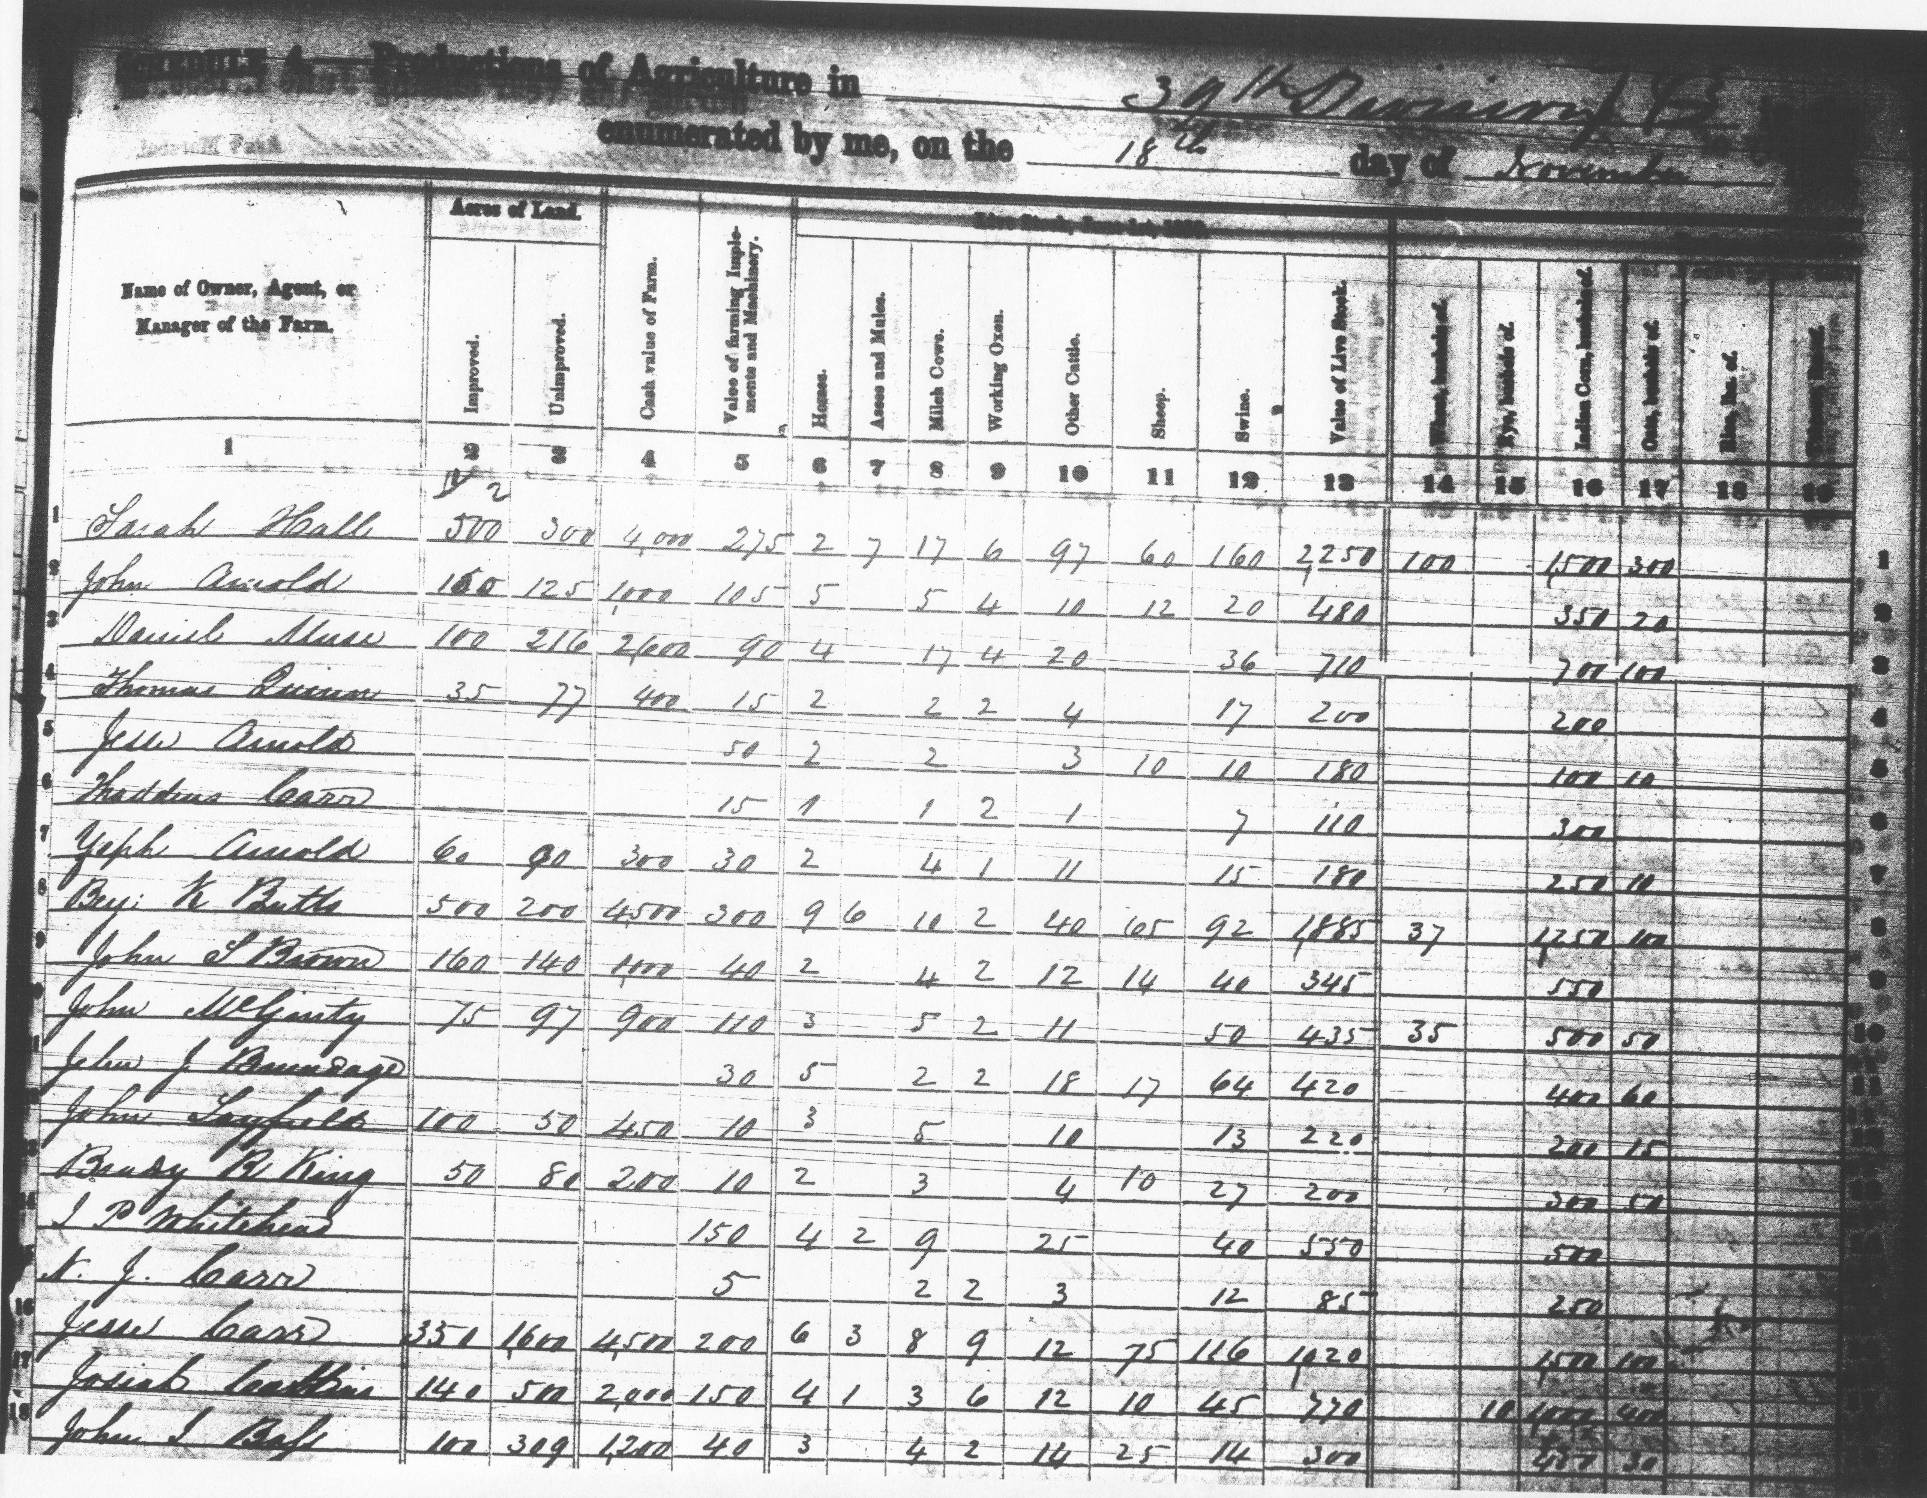 SCHEDULE 4.—Productions of Agriculture in 39th
enumerated by me, on the 18th day of November
Name of Owner, Agent, or Manager of the Farm.
Acres of Land.
Improved.
Unimproved.
Cash value of Farm.
Value of farming Implements and Machinery.
Live Stock, June 1st, 1850.
Horses.
Asses and Mules.
Milch Cows.
Working Oxen.
Other Cattle.
Sheep.
Swine.
Value of Live Stock.
Wheat, bushels of.
Rye, bushels of.
Indian Corn, bushels of.
Oats, bushels of.
Rice, lbs. of.
Tobacco, lbs. of.
1 2 3 4 5 6 7 8 9 10 11 12 13 14 15 16 17 18 19
1 Sarah Hall 500 300 4,000 275 2 7 17 6 97 60 160 2,250 100 1,500 300 1
2 John Arnold 125 1,000 105 5 5 4 10 12 20 480 350 20 2
3 Daniel Muse 100 216 2,600 90 4 17 4 20 36 710 700 100 3
4 Thomas Quinn 35 77 400 15 2 2 2 4 17 200 200 4
5 Jesse Arnold 50 2 2 3 10 10 180 100 10 5
6 Thaddeus Carr 15 1 1 2 1 7 110 300 6
7 Zeph Arnold 60 90 300 30 2 4 1 11 15 180 250 10 7
8 Benj. K Butts 500 200 4,500 300 9 6 10 2 40 65 92 1,885 37 1,250 100 8
9 John S Brown 160 140 1,100 40 2 4 2 12 14 40 345 550 9
John McGinty 75 97 900 110 3 5 2 11 50 435 35 500 50 10
John J. Brundage 30 5 2 2 18 17 64 420 400 60 11
John Layfield 100 50 450 10 3 5 10 13 220 200 15 12
Brady R King 50 80 200 10 2 3 4 10 27 200 300 50
J P Whitehead 150 4 2 9 25 40 550 500
N. J. Carr 5 2 2 3 12 85 250
16 Jesse Carr 350 1,600 4,500 200 6 3 8 9 12 75 116 1,020 1,500 100
17 Josiah 140 500 2,000 150 4 1 3 6 12 10 45 770 10 1,000 400 17
18 John S Bass 100 309 1,200 40 3 4 2 14 25 14 300 450 30